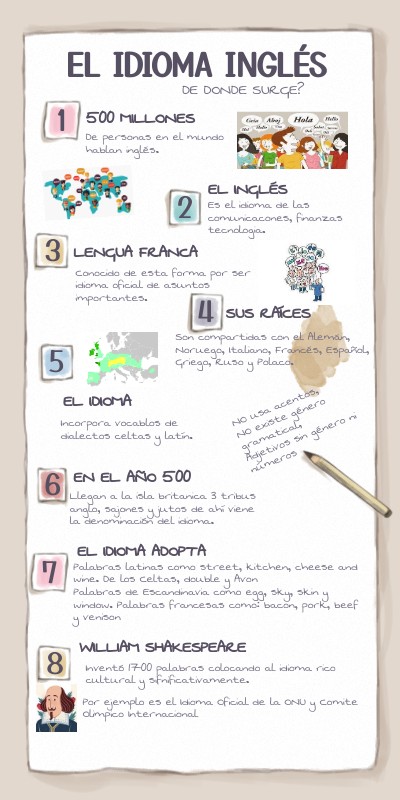 EL IDIOMA INGLÉS
DE DONDE SURGE?
1
500 MILLONES
De personas en el mundo
hablan inglés.
Hola
Hello
2
EL INGLÉS
Es el idioma de las
comunicacones, finanzas
tecnologia.
3
LENGUA FRANCA
Conocido de esta forma por ser
idioma oficial de asuntos
importantes.
4
SUS RAÍCES
Son compartidas con el Alemán,
Noruego, Italiano, Francés, Español,
Griego, Ruso y Polaco.
5
EL IDIOMA
Incorpora vocablos de
dialectos celtas y latín.
NO usa acentos,
NO existe género
gramatical,
Adjetivos sin género ni
números
6
EN EL AÑO 500
Llegan a la isla britanica 3 tribus
anglo, sajones y jutos de ahí viene
la denominación del idioma.
7
EL IDIOMA ADOPTA
Palabras latinas como street, kitchen, cheese and
wine. De los Celtas, double y Avon
Palabras de Escandinavia como egg, sky, skin y
window. Palabras francesas como: bacon, pork, beef
y venison
8
WILLIAM SHAKESPEARE
Inventó 1700 palabras colocando al idioma rico
cultural y sifnificativamente.
Por ejemplo es el Idioma Oficial de la ONU y Comite
Olímpico Internacional